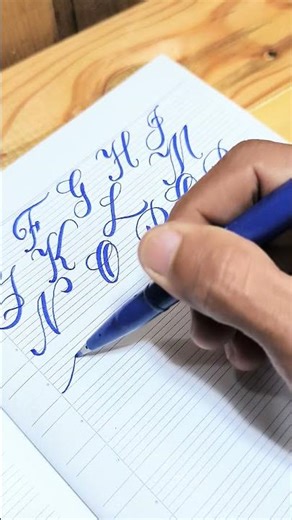 F G H I
J K L M
N O P Q R